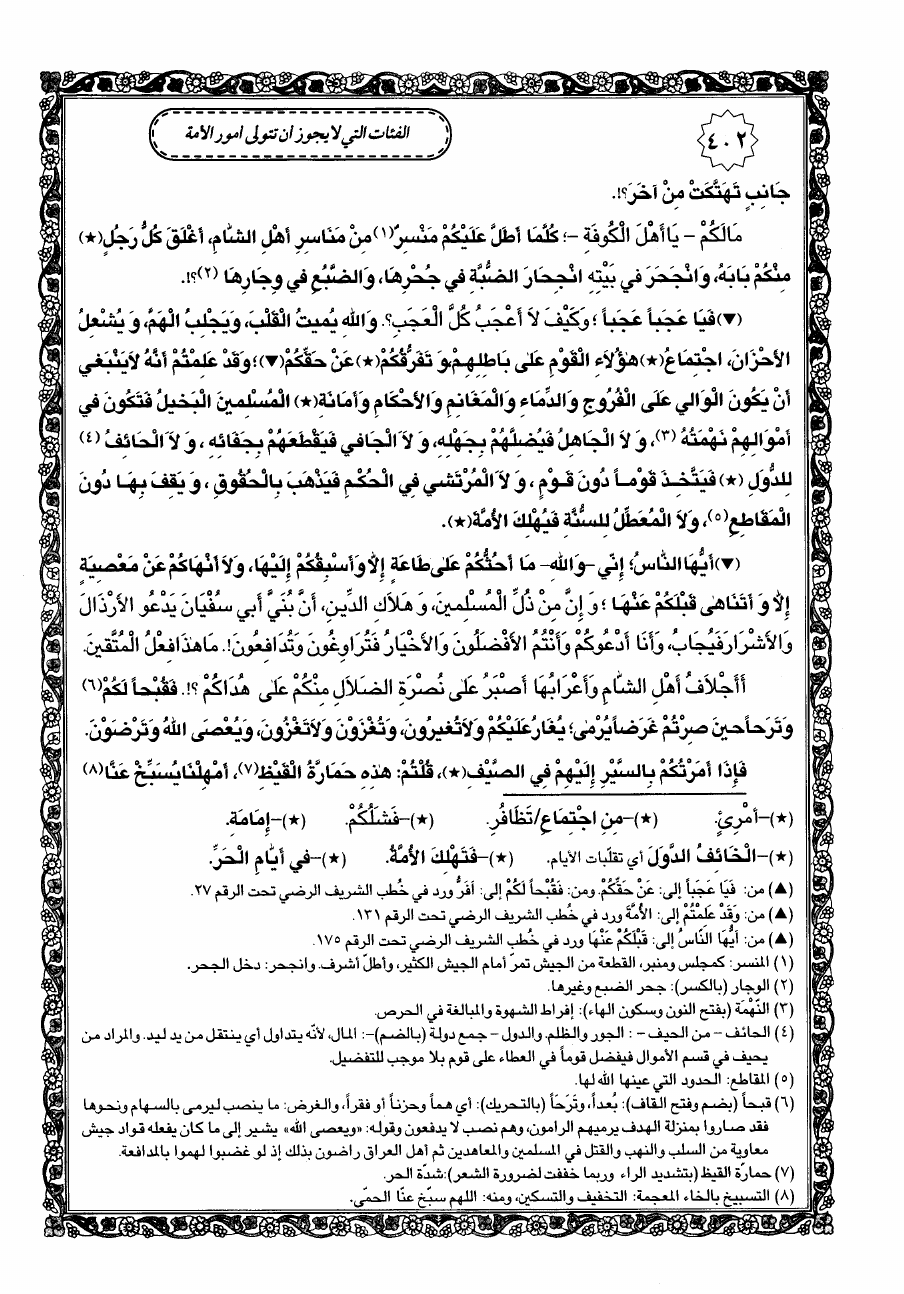 ٤٠٢
الفئات التي لا يجوز أن تتولى أمور الأمة
جَانِبٍ تَهَتَّكَتْ مِنْ آخَرَ؟!.
مَالَكُمْ - يَا أَهْلَ الْكُوفَةِ -؛ كُلَّمَا أَطَلَّ عَلَيْكُمْ مَنْسِرٌ(١) مِنْ مَنَاسِرِ أَهْلِ الشَّامِ، أَغْلَقَ كُلُّ رَجُلٍ(★)
مِنْكُمْ بَابَهُ، وَانْجَحَرَ فِي بَيْتِهِ انْجِحَارَ الضَّبَّةِ فِي جُحْرِهَا، وَالضَّبُعِ فِي وِجَارِهَا (٢)؟!.
(▼) فَيَا عَجَباً عَجَباً ؛ وَكَيْفَ لاَ أَعْجَبُ كُلَّ الْعَجَبِ؟. وَاللهِ يُمِيتُ الْقَلْبَ، وَيَجْلِبُ الْهَمَّ، وَ يُشْعِلُ
الأَحْزَانَ، اجْتِمَاعُ(★) هٰؤُلاَءِ الْقَوْمِ عَلىٰ بَاطِلِهِمْ وَ تَفَرُّقُكُمْ(★) عَنْ حَقِّكُمْ(▼)؛ وَقَدْ عَلِمْتُمْ أَنَّهُ لاَ يَنْبَغِي
أَنْ يَكُونَ الْوَالِي عَلَى الْفُرُوجِ وَالدِّمَاءِ وَالْمَغَانِمِ وَالأَحْكَامِ وَأَمَانَةِ(★) الْمُسْلِمِينَ الْبَخِيلُ فَتَكُونَ فِي
أَمْوَالِهِمْ نَهْمَتُهُ (٣)، وَ لاَ الْجَاهِلُ فَيُضِلَّهُمْ بِجَهْلِهِ، وَ لاَ الْجَافِي فَيَقْطَعَهُمْ بِجَفَائِهِ ، وَ لاَ الْحَائِفُ (٤)
لِلدُّوَلِ (★) فَيَتَّخِذَ قَوْمـاً دُونَ قَـوْمٍ ، وَ لاَ الْمُرْتَشِي فِي الْحُكْمِ فَيَذْهَبَ بِالْحُقُوقِ ، وَ يَقِفَ بِهَـا دُونَ
الْمَقَاطِعِ(٥)، وَلاَ الْمُعَطِّلُ لِلسُّنَّةِ فَيُهْلِكَ الأُمَّةَ(★).
(▼) أَيُّهَا النَّاسُ؛ إِنِّي -وَاللهِ- مَا أَحُثُّكُمْ عَلىٰ طَاعَةٍ إِلاَّ وَأَسْبِقُكُمْ إِلَيْهَا، وَلاَ أَنْهَاكُمْ عَنْ مَعْصِيَةٍ
إِلاَّ وَ أَتَنَاهىٰ قَبْلَكُمْ عَنْهَا ؛ وَ إِنَّ مِنْ ذُلِّ الْمُسْلِمِينَ، وَ هَلاَكِ الدِّينِ، أَنَّ بُنَيَّ أَبِي سُفْيَانَ يَدْعُو الأَرْذَالَ
وَالأَشْرَارَ فَيُجَابُ، وَأَنَا أَدْعُوكُمْ وَأَنْتُمُ الأَفْضَلُونَ وَالأَخْيَارُ فَتُرَاوِغُونَ وَتُدَافِعُونَ!. مَا هٰذَا فِعْلُ الْمُتَّقِينَ.
أَأَجْلاَفُ أَهْلِ الشَّامِ وَأَعْرَابُهَا أَصْبَرُ عَلىٰ نُصْرَةِ الضَّلاَلِ مِنْكُمْ عَلىٰ هُدَاكُمْ ؟!. فَقُبْحاً لَكُمْ(٦)
وَتَرَحاً حِينَ صِرْتُمْ غَرَضاً يُرْمىٰ؛ يُغَارُ عَلَيْكُمْ وَلاَ تُغِيرُونَ، وَتُغْزَوْنَ وَلاَ تَغْزُونَ، وَيُعْصَى اللهُ وَتَرْضَوْنَ.
فَإِذَا أَمَرْتُكُمْ بِالسَّيْرِ إِلَيْهِمْ فِي الصَّيْفِ(★)، قُلْتُمْ: هٰذِهِ حَمَارَّةُ الْقَيْظِ(٧)، أَمْهِلْنَا يُسَبِّخْ عَنَّا(٨)
(★)-أَمْرِئٍ. (★)-مِنِ اجْتِمَاعِ/تَظَافُرِ. (★)-فَشَلُكُمْ. (★)-إِمَامَةِ.
(★)-الْخَائِفُ الدُّوَلَ أي تقلّبات الأيام. (★)-فَتَهْلِكَ الأُمَّةُ. (★)-فِي أَيَّامِ الْحَرِّ.
(▲) من: فَيَا عَجَباً إلى: عَنْ حَقِّكُمْ. ومن: فَقُبْحاً لَكُمْ إلى: أَفَرُّ ورد في خُطب الشريف الرضي تحت الرقم ٢٧.
(▲) من: وَقَدْ عَلِمْتُمْ إلى: الأُمَّةَ ورد في خُطب الشريف الرضي تحت الرقم ١٣١.
(▲) من: أَيُّهَا النَّاسُ إلى: قَبْلَكُمْ عَنْهَا ورد في خُطب الشريف الرضي تحت الرقم ١٧٥.
(١) المنسر: كمجلس ومنبر، القطعة من الجيش تمرّ أمام الجيش الكثير، وأطلّ أشرف. وانجحر: دخل الجحر.
(٢) الوجار (بالكسر): جحر الضبع وغيرها.
(٣) النّهْمَة (بفتح النون وسكون الهاء): إفراط الشهوة والمبالغة في الحرص.
(٤) الحائف - من الحيف - : الجور والظلم. والدول - جمع دولة (بالضم)-: المال، لأنّه يتداول أي ينتقل من يد ليد. والمراد من
يحيف في قسم الأموال فيفضل قوماً في العطاء على قوم بلا موجب للتفضيل.
(٥) المقاطع: الحدود التي عينها الله لها.
(٦) قبحاً (بضم وفتح القاف): بُعداً، وتَرَحاً (بالتحريك): أي هماً وحزناً أو فقراً، والغرض: ما ينصب ليرمى بالسهام ونحوها
فقد صاروا بمنزلة الهدف يرميهم الرامون، وهم نصب لا يدفعون وقوله: «ويعصى الله» يشير إلى ما كان يفعله قواد جيش
معاوية من السلب والنهب والقتل في المسلمين والمعاهدين ثم أهل العراق راضون بذلك إذ لو غضبوا لهموا بالمدافعة.
(٧) حمارّة القيظ (بتشديد الراء وربما خففت لضرورة الشعر):شدّة الحر.
(٨) التسبيخ بالخاء المعجمة: التخفيف والتسكين، ومنه: اللهم سبّخ عنّا الحمّى.